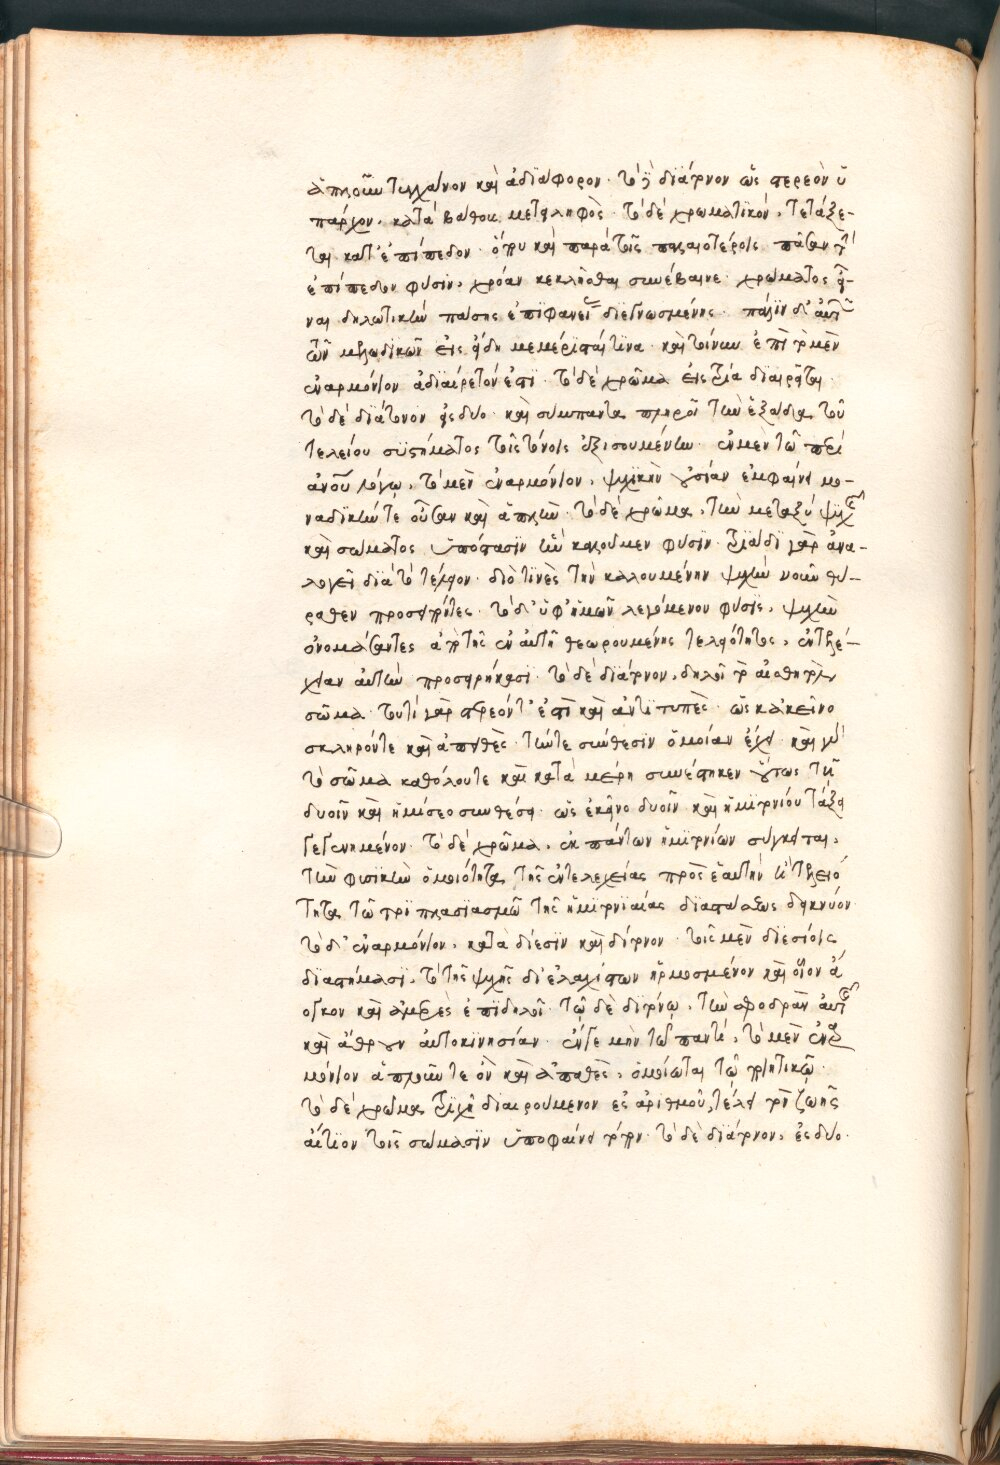 ἁπλοῦν τυγχάνον καὶ ἀδϊάφορον· τὸ δὲ διάτονον ὡς στερεὸν ὑ
πάρχον, κατὰ βάθους μετειληφὸς· τὸ δὲ χρωματϊκόν, τετάξε-
ται κατ' ἐπίπεδον· ὅπου καὶ παρὰ τοῖς παλαιοτέροις πᾶσαν τὴν
ἐπίπεδον φύσϊν, χρόαν κεκλῆσθαι συνέβαινε· χρώματος εἶ-
ναι δηλωτικὴν πάσης ἐπϊφανείας διεγνωσμένης· πάλϊν δ' αὐτῶν
τῶν μελωδικῶν εἰς εἴδη μεμέρϊσταί τϊνα· καὶ τοίνυν ἐπὶ τὸ μὲν
ἐναρμόνϊον ἀδϊαίρετόν ἐστϊ· τὸ δὲ χρῶμα εἰς τρία διαιρεῖται·
τὸ δὲ διάτονον εἰς δυο· καὶ σύμπαντα πληροῖ τὴν ἑξάδα τοῦ
τελείου συστήματος τοῖς τόνοις ἐξισουμένην· ἐν μὲν τῷ περὶ
ἀνοῦ λόγῳ, τὸ μὲν ἐναρμόνϊον, ψυχϊκὴν οὐσίαν ἐμφαίνει μο-
ναδϊκήν τε οὖσαν καὶ ἁπλῆν· τὸ δὲ χρῶμα, τὴν μεταξὺ ψυχῆς
καὶ σώματος ὑπόστασϊν ἣν καλοῦμεν φύσϊν· τρϊάδϊ γὰρ ἀνα-
λογεῖ διὰ τὸ τέλειον· διὸ τϊνὲς τὴν καλουμένην ψυχὴν νοῦν θύ-
ραθεν προσειπόντες· τὸ δ' ὑφ' ἡμῶν λεγόμενον φύσϊς, ψυχὴν
ὀνομάσαντες ἀπὸ τῆς ἐν αὐτῇ θεωρουμένης τελειότητος, ἐντελέ-
χειαν αὐτὴν προσειρήκασϊ· τὸ δὲ διάτονον, δηλοῖ τὸ αἰσθητὸν
σῶμα· τουτὶ γὰρ στερεόν τ' ἐστὶ καὶ ἀντϊτυπὲς· ὡς κἀκεῖνο
σκληρόν τε καὶ ἀπειθὲς· τήν τε σύνθεσϊν ὁμοίαν ἔχει· καὶ γὰρ
τὸ σῶμα καθόλου τε καὶ κατὰ μέρη συνέστηκεν οὕτως τῇ
δυοῖν καὶ ἡμίσεος συνθέσει· ὡς ἐκεῖνο δυοῖν καὶ ἡμϊτονίου τάξει
γεγενημένον· τὸ δὲ χρῶμα, ἐκ πάντων ἡμϊτονίων σύγκειται,
τὴν φυσϊκὴν ὁμοιότητα τῆς ἐντελεχείας πρὸς ἑαυτὴν κ' τελειό
τητα τῷ τρϊπλασϊασμῷ τῆς ἡμϊτονϊαίας δϊαστάσεως δεικνύον·
τὸ δ' ἐναρμόνϊον, κατὰ δίεσϊν καὶ δίτονον· τοῖς μὲν διεσίοις
διαστήμασϊ, τὸ τῆς ψυχῆς δι' ἐλαχίστων ἡρμοσμένον καὶ οἷον ἄ
ογκον καὶ ἀμερὲς ἐπϊδηλοῖ· τῷ δὲ διτόνῳ, τὴν σφοδρὰν αὐτῆς
καὶ ἄθρουν αὐτοκινησίαν· ἔν γε μὴν τῷ παντὶ, τὸ μὲν ἐναρ
μόνϊον ἁπλοῦν τε ὂν καὶ ἀπαθὲς, ὁμοίωται τῷ νοητικῷ·
τὸ δὲ χρῶμα τρϊχῆ διαιρούμενον ἐξ ἀρϊθμοῦ, τέλει τὸν ζωῆς
αἴτϊον τοῖς σώμασϊν ὑποφαίνει τόπον· τὸ δὲ διάτονον, ἐς δυο·